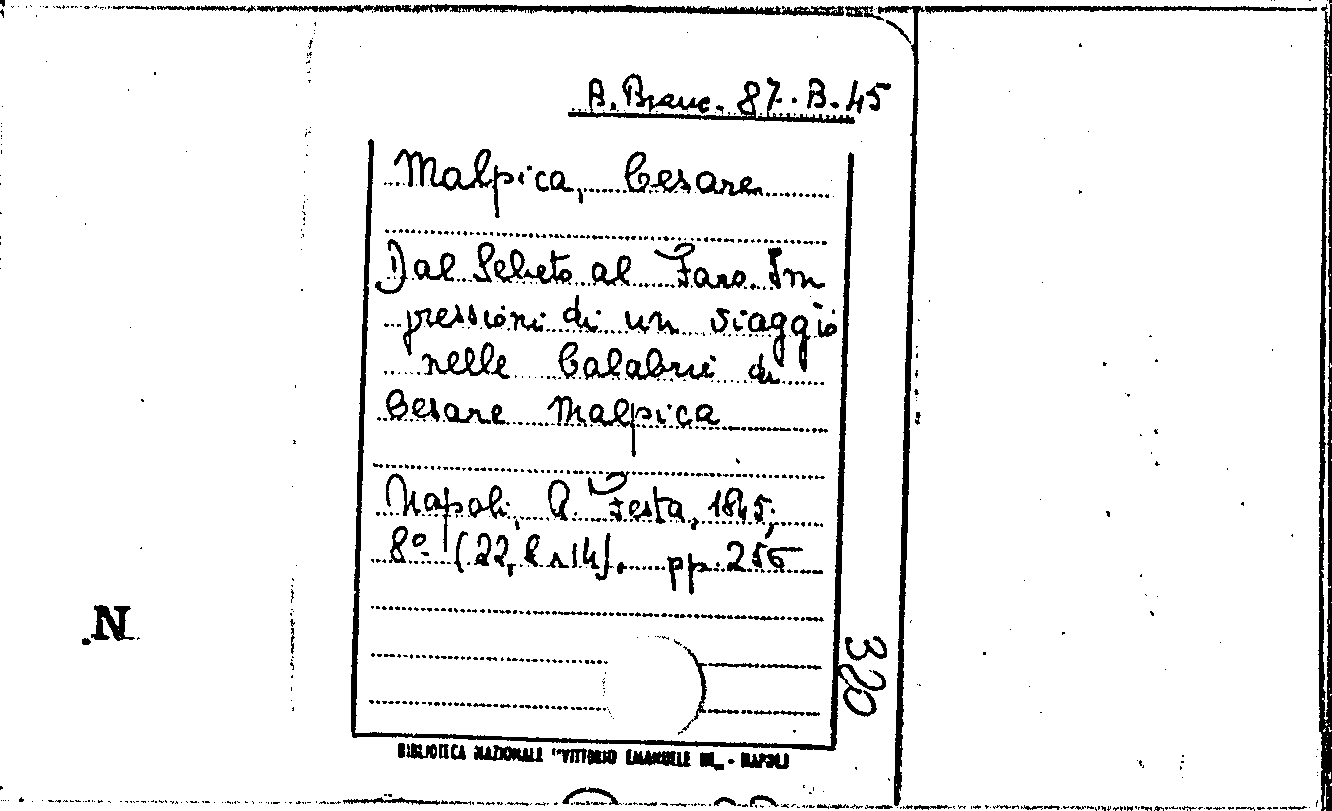 B. Branc. 87. B. 45
Malpica, Cesare
Dal Sebeto al Faro. Im
pressioni di un viaggio
nelle Calabrie di
Cesare Malpica
Napoli, A. Festa, 1845;
8º (22,8x14). pp. 256
320
N.
BIBLIOTECA NAZIONALE "VITTORIO EMANUELE III" - NAPOLI